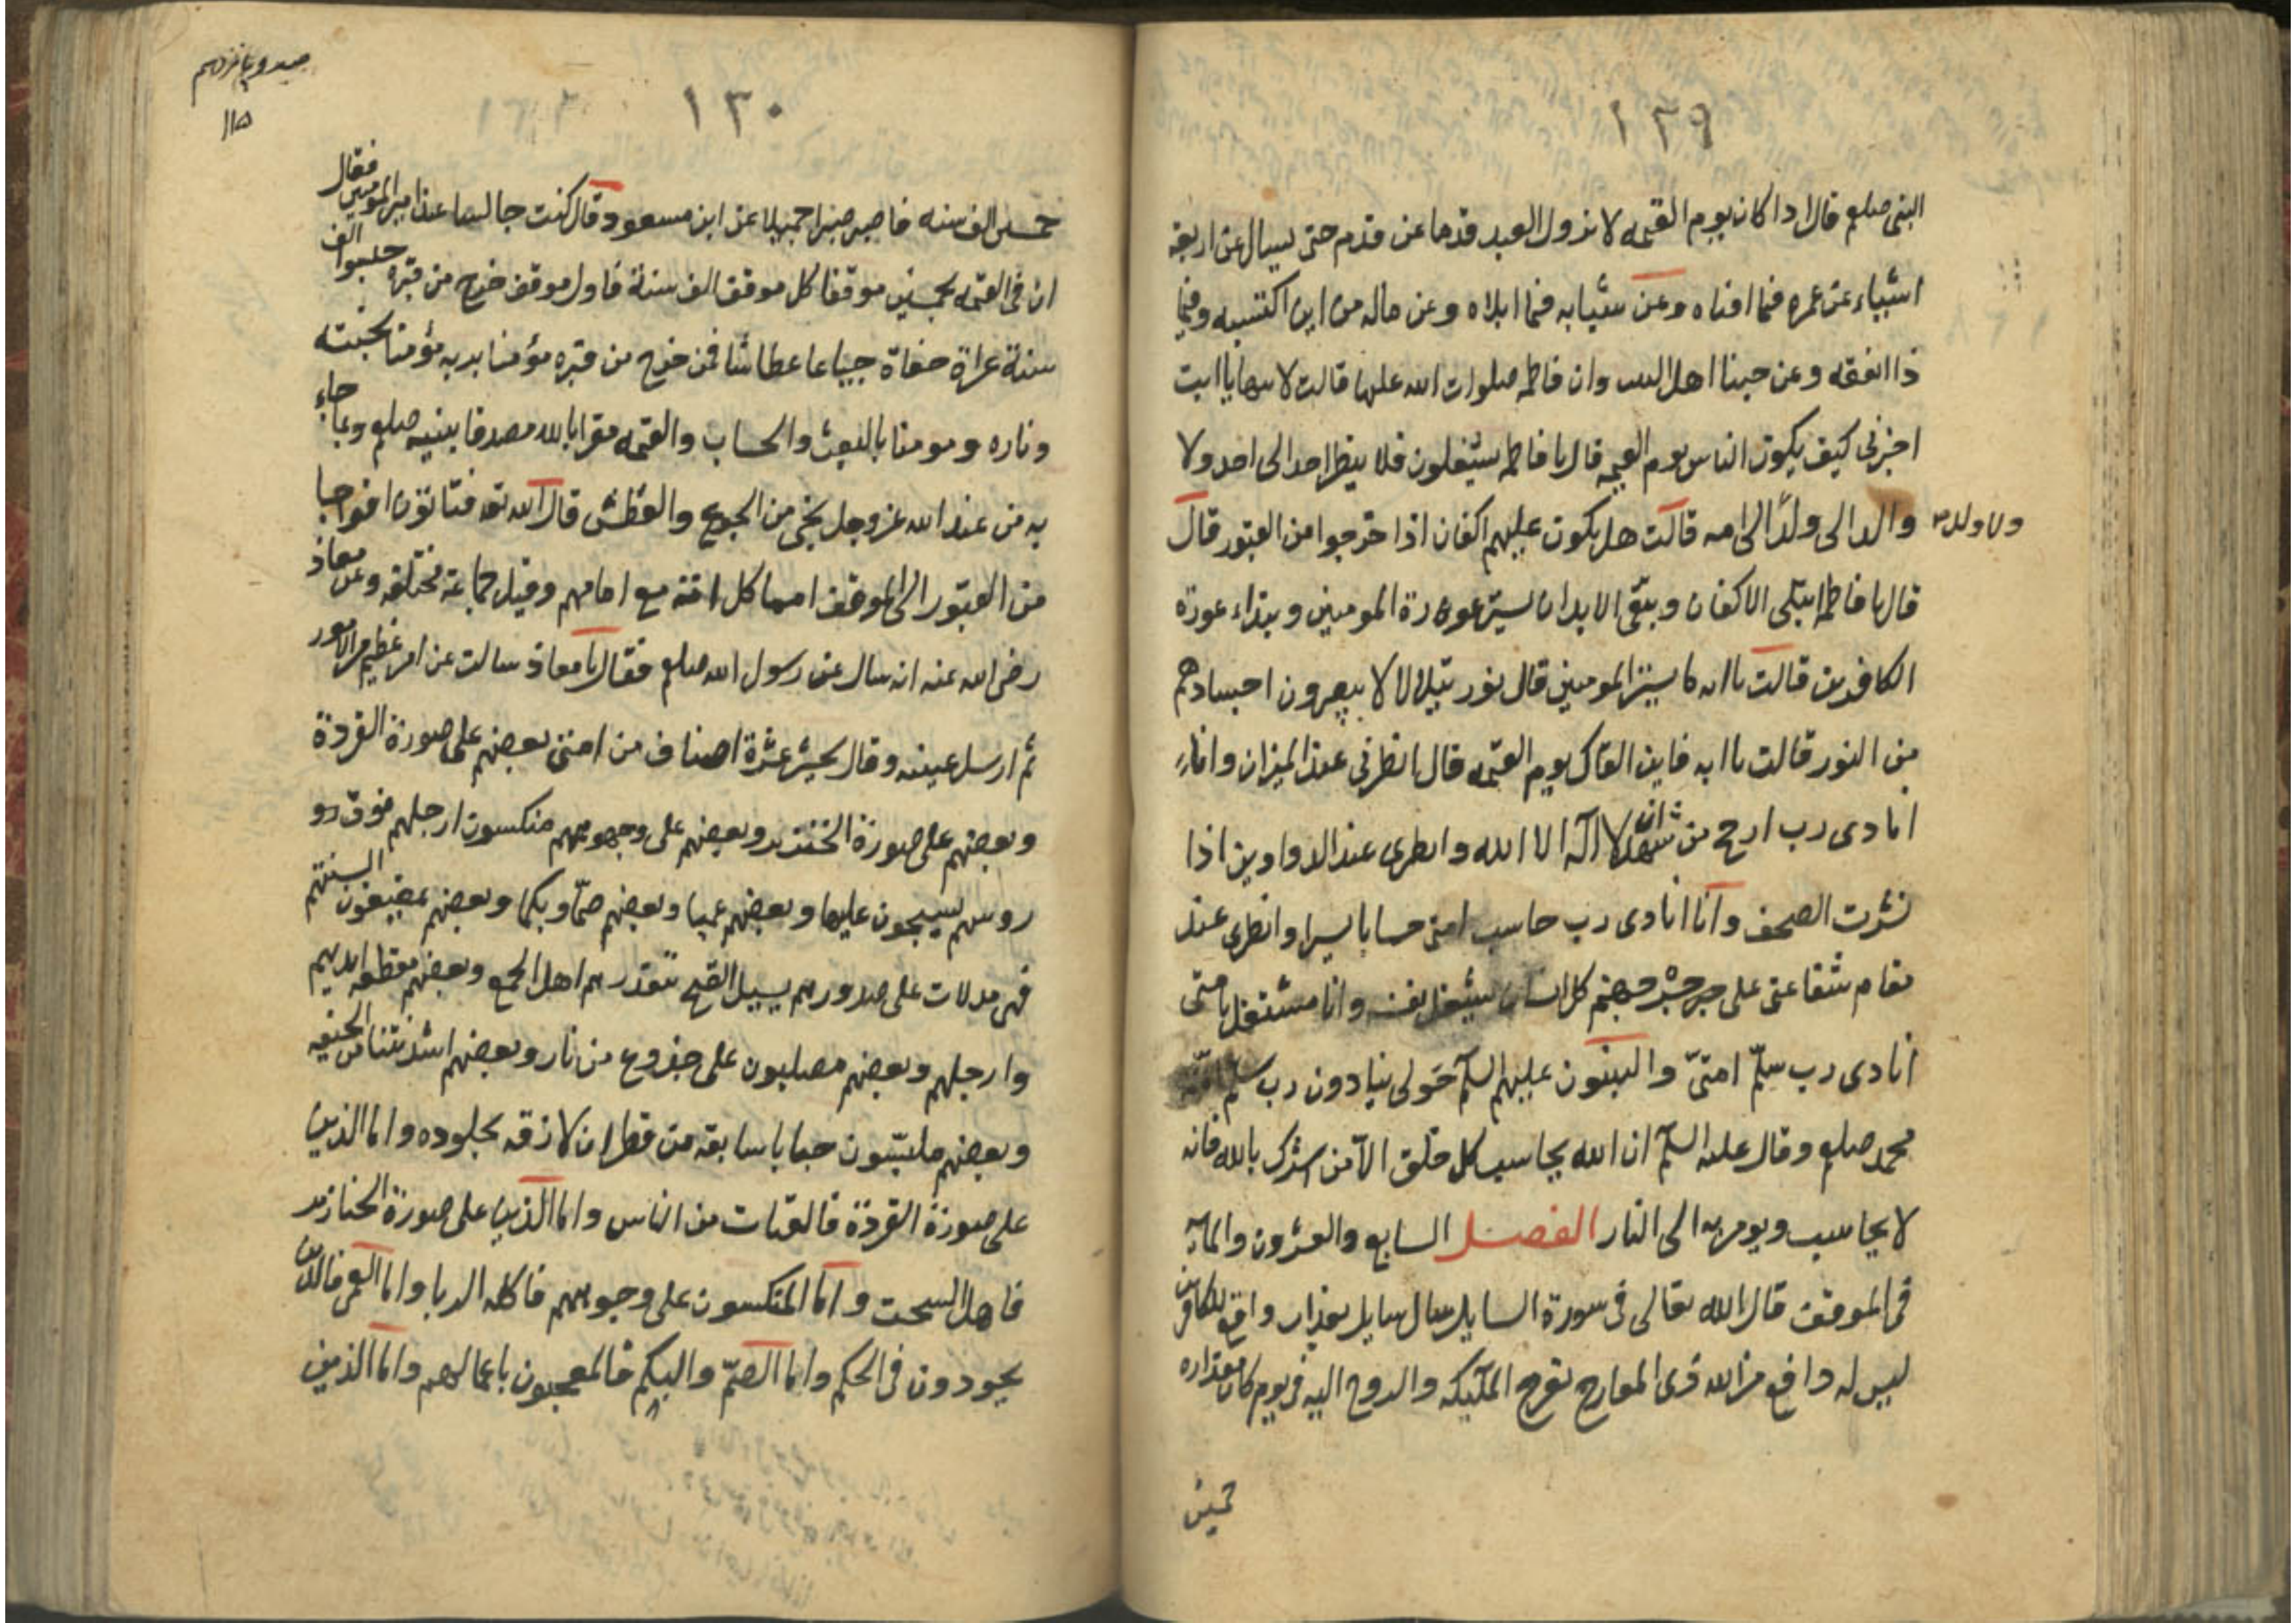 ١٢٩
النبى صلعم قال اذا كان يوم القيمه لا تزول العبد قدما عن قدم حتى يسال عن اربعة
اشياء عن عمره فيما افناه وعن شبابه فيما ابلاه وعن ماله من اين اكتسبه وفيما
ذا انفقه وعن حبنا اهل البيت وان فاطمه صلوات الله عليها قالت لابيها يا ابت
اخبرنى كيف يكون الناس يوم القيمه قال يا فاطمه يشغلون فلا ينظر احد الى احد ولا
والدا الى ولدا الى امه قالت هل يكون عليهم اكفان اذا خرجوا من القبور قال
ولا ولد
قال يا فاطمه تبلى الاكفان وتبقى الابدان يستر عورة المومنين وبتداء عورة
الكافرين قالت يا ابه ما يستر المومنين قال نور يتلالا لا يبصرون اجسادهم
من النور قالت يا ابه فاين القاك يوم القيمه قال انظرنى عند الميزان وانا
انادى رب ارجح من شهد ان لا اله الا الله وانظرى عند الدواوين اذا
نشرت الصحف وانا انادى رب حاسب امتى حسابا يسيرا وانظرى عند
مقام شفاعتى على جسر جهنم كل انسان يشغل بنفسه وانا مشتغل بامتى
انادى رب سلّم امتىّ والنبيون عليهم السلم حولى ينادون رب سلم امّة
محمد صلعم وقال عليه السلم ان الله يحاسب كل خلق الا من اشرك بالله فانه
لا يحاسب ويومر به الى النار الفصل السابع والعشرون والمايه
فى الموقف قال الله تعالى فى سورة السايل سال سايل بعذاب واقع للكافرين
ليس له دافع من الله ذى المعارج تعرج الملئيكه والروح اليه فى يوم كان مقداره
خمسين
صدو پانزدهم
١١٥
١٣٠
خمسين الف سنه فاصبر صبرا جميلا عن ابن مسعود قال كنت جالسا عند امير المومنين فقال
ان فى القيمه لخمسين موقفا كل موقف الف سنة فاول موقف خرج من قبره حبسوا الف
سنة عراة حفاة جياعا عطاشا فمن خرج من قبره مؤمنا بربه مؤمنا بجنته
وناره ومومنا بالبعث والحساب والقيمه مقرا بالله مصدقا بنبيه صلعم وبما جاء
به من عند الله عز وجل نجى من الجوع والعطش قال الله تعه فتاتون افواجا
من القبور الى الموقف امما كل امة مع امامهم وقيل جماعة مختلفه وعن معاذ
رضى الله عنه انه سال عن رسول الله صلعم فقال يا معاذ سالت عن امر عظيم من الامور
ثم ارسل عينيه وقال يحشر عشرة اصناف من امتى بعضهم على صورة القردة
وبعضهم على صورة الخنزير وبعضهم على وجوههم منكسون ارجلهم فوق رو
روسهم يسحبون عليها وبعضهم عميا وبعضهم صمّا وبكما وبعضهم يمضغون السنتهم
فهى مدلات على صدورهم يسيل القيح تتقذرهم اهل الجمع وبعضهم مقطعه ايديهم
وارجلهم وبعضهم مصلبون على جذوع من نار وبعضهم اشد نتنا من الجيفه
وبعضهم ملبّسون جبابا سابقه من قطران لازقه بجلوده واما الذين
على صورة القردة فالقتات من الناس واما الذين على صورة الخنازير
فاهل السحت واما المنكسون على وجوههم فاكله الربا واما العمى فالذين
يجورون فى الحكم واما الصمّ والبكم فالمعجبون باعمالهم واما الذين